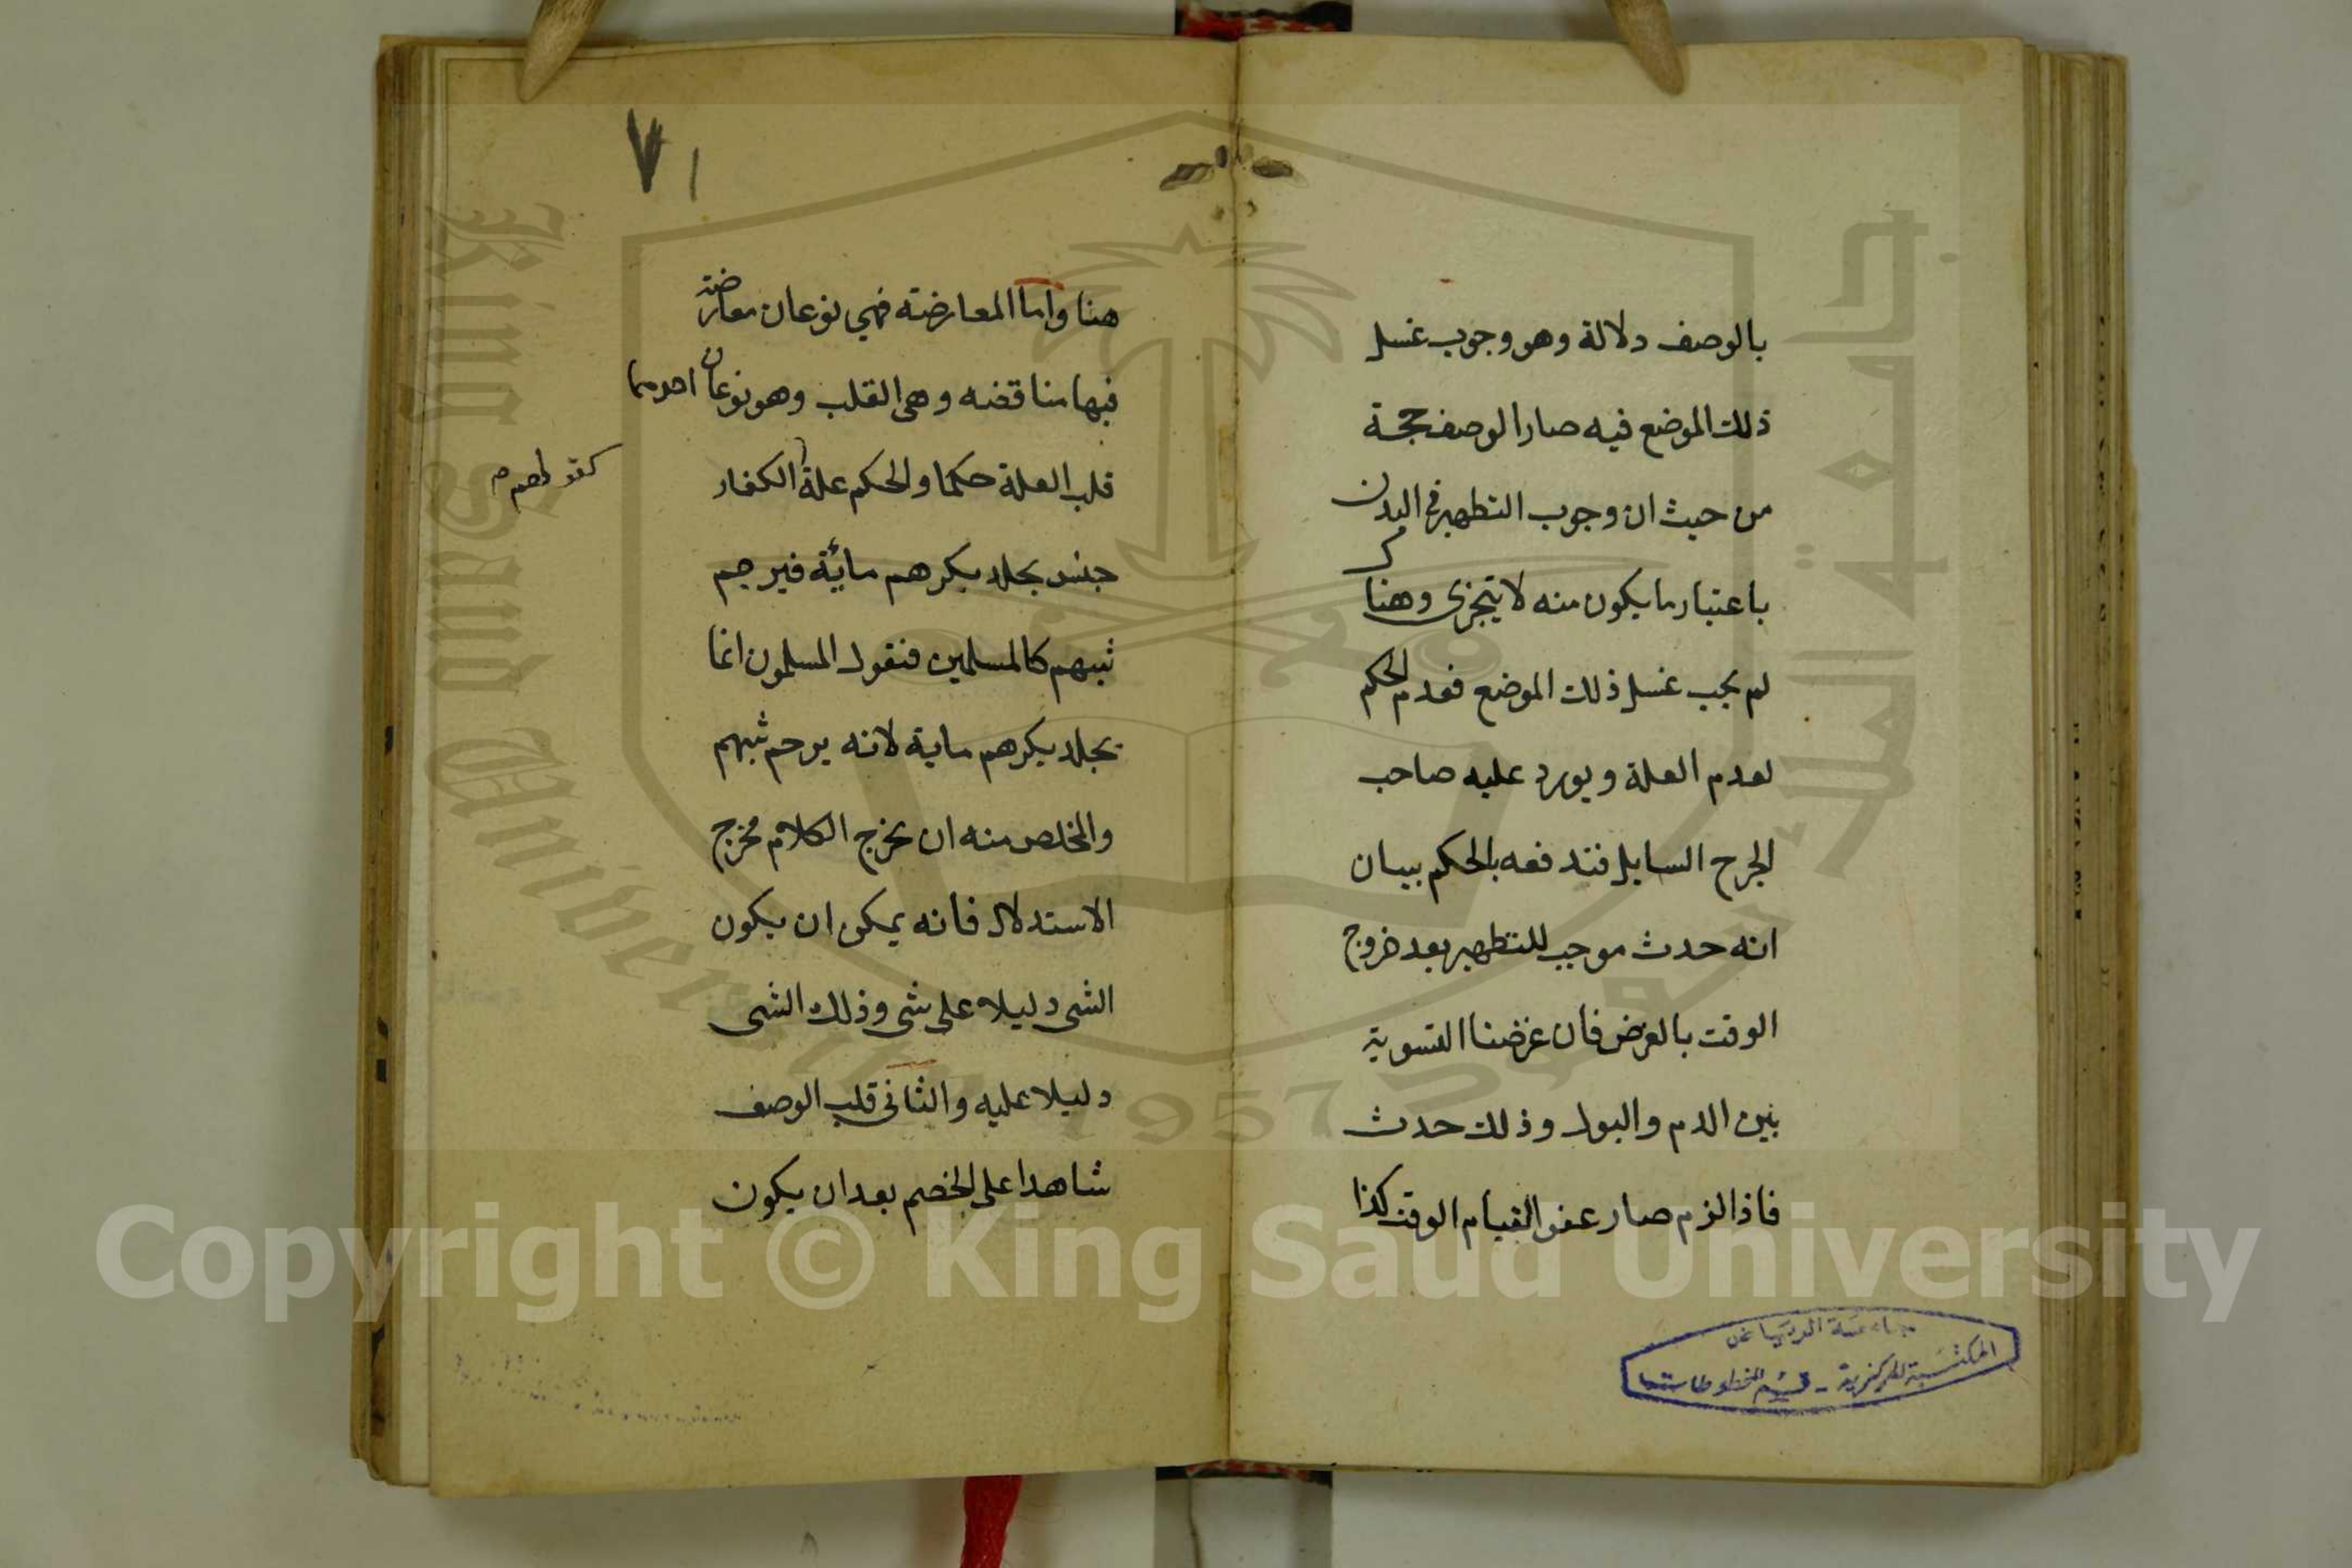 بالوصف دلالة وهو وجوب غسل
ذلك الموضع فيه صار الوصف حجة
من حيث ان وجوب التطهير في البدن
باعتبار ما يكون منه لا يتجزى وهنا
لم يجب غسل ذلك الموضع فعدم الحكم
لعدم العلة ويورد عليه صاحب
الجرح السايل فندفعه بالحكم ببيان
انه حدث موجب للتطهير بعد خروج
الوقت بالغرض فان غرضنا التسوية
بين الدم والبول وذلك حدث
فاذا لزم صار عفوا لقيام الوقت كذا
جامعة الرياض
المكتبة المركزية - قسم المخطوطات
٧١
هنا واما المعارضة فهي نوعان معارضة
فيها مناقضه وهى القلب وهو نوعان احدهما
قلب العلة حكما والحكم علة الكفار
كقولهم
جنس يجلد بكرهم مائة فيرجم
ثيبهم كالمسلمين فنقول المسلمون انما
يجلد بكرهم ماية لانه يرجم ثيبهم
والمخلص منه ان يخرج الكلام مخرج
الاستدلال فانه يمكن ان يكون
الشى دليلا على شى وذلك الشى
دليلا عليه والثانى قلب الوصف
شاهدا على الخصم بعد ان يكون
King Saud University
جامعة الملك سعود
1957
Copyright © King Saud University